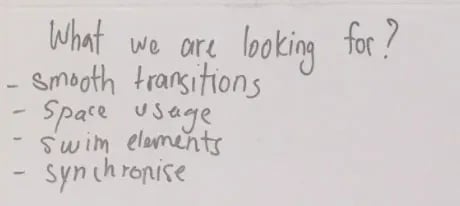 What we are looking for?
- smooth transitions
- space usage
- swim elements
- synchronise